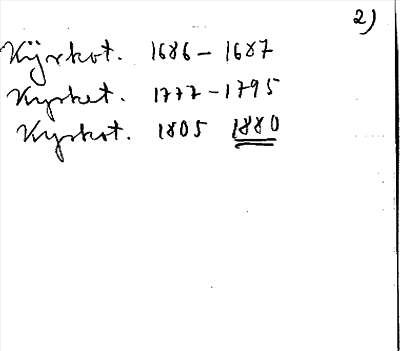 2)
Kÿrkot. 1686 - 1687
Kyrket. 1777 - 1795
Kyrkot. 1805 1880